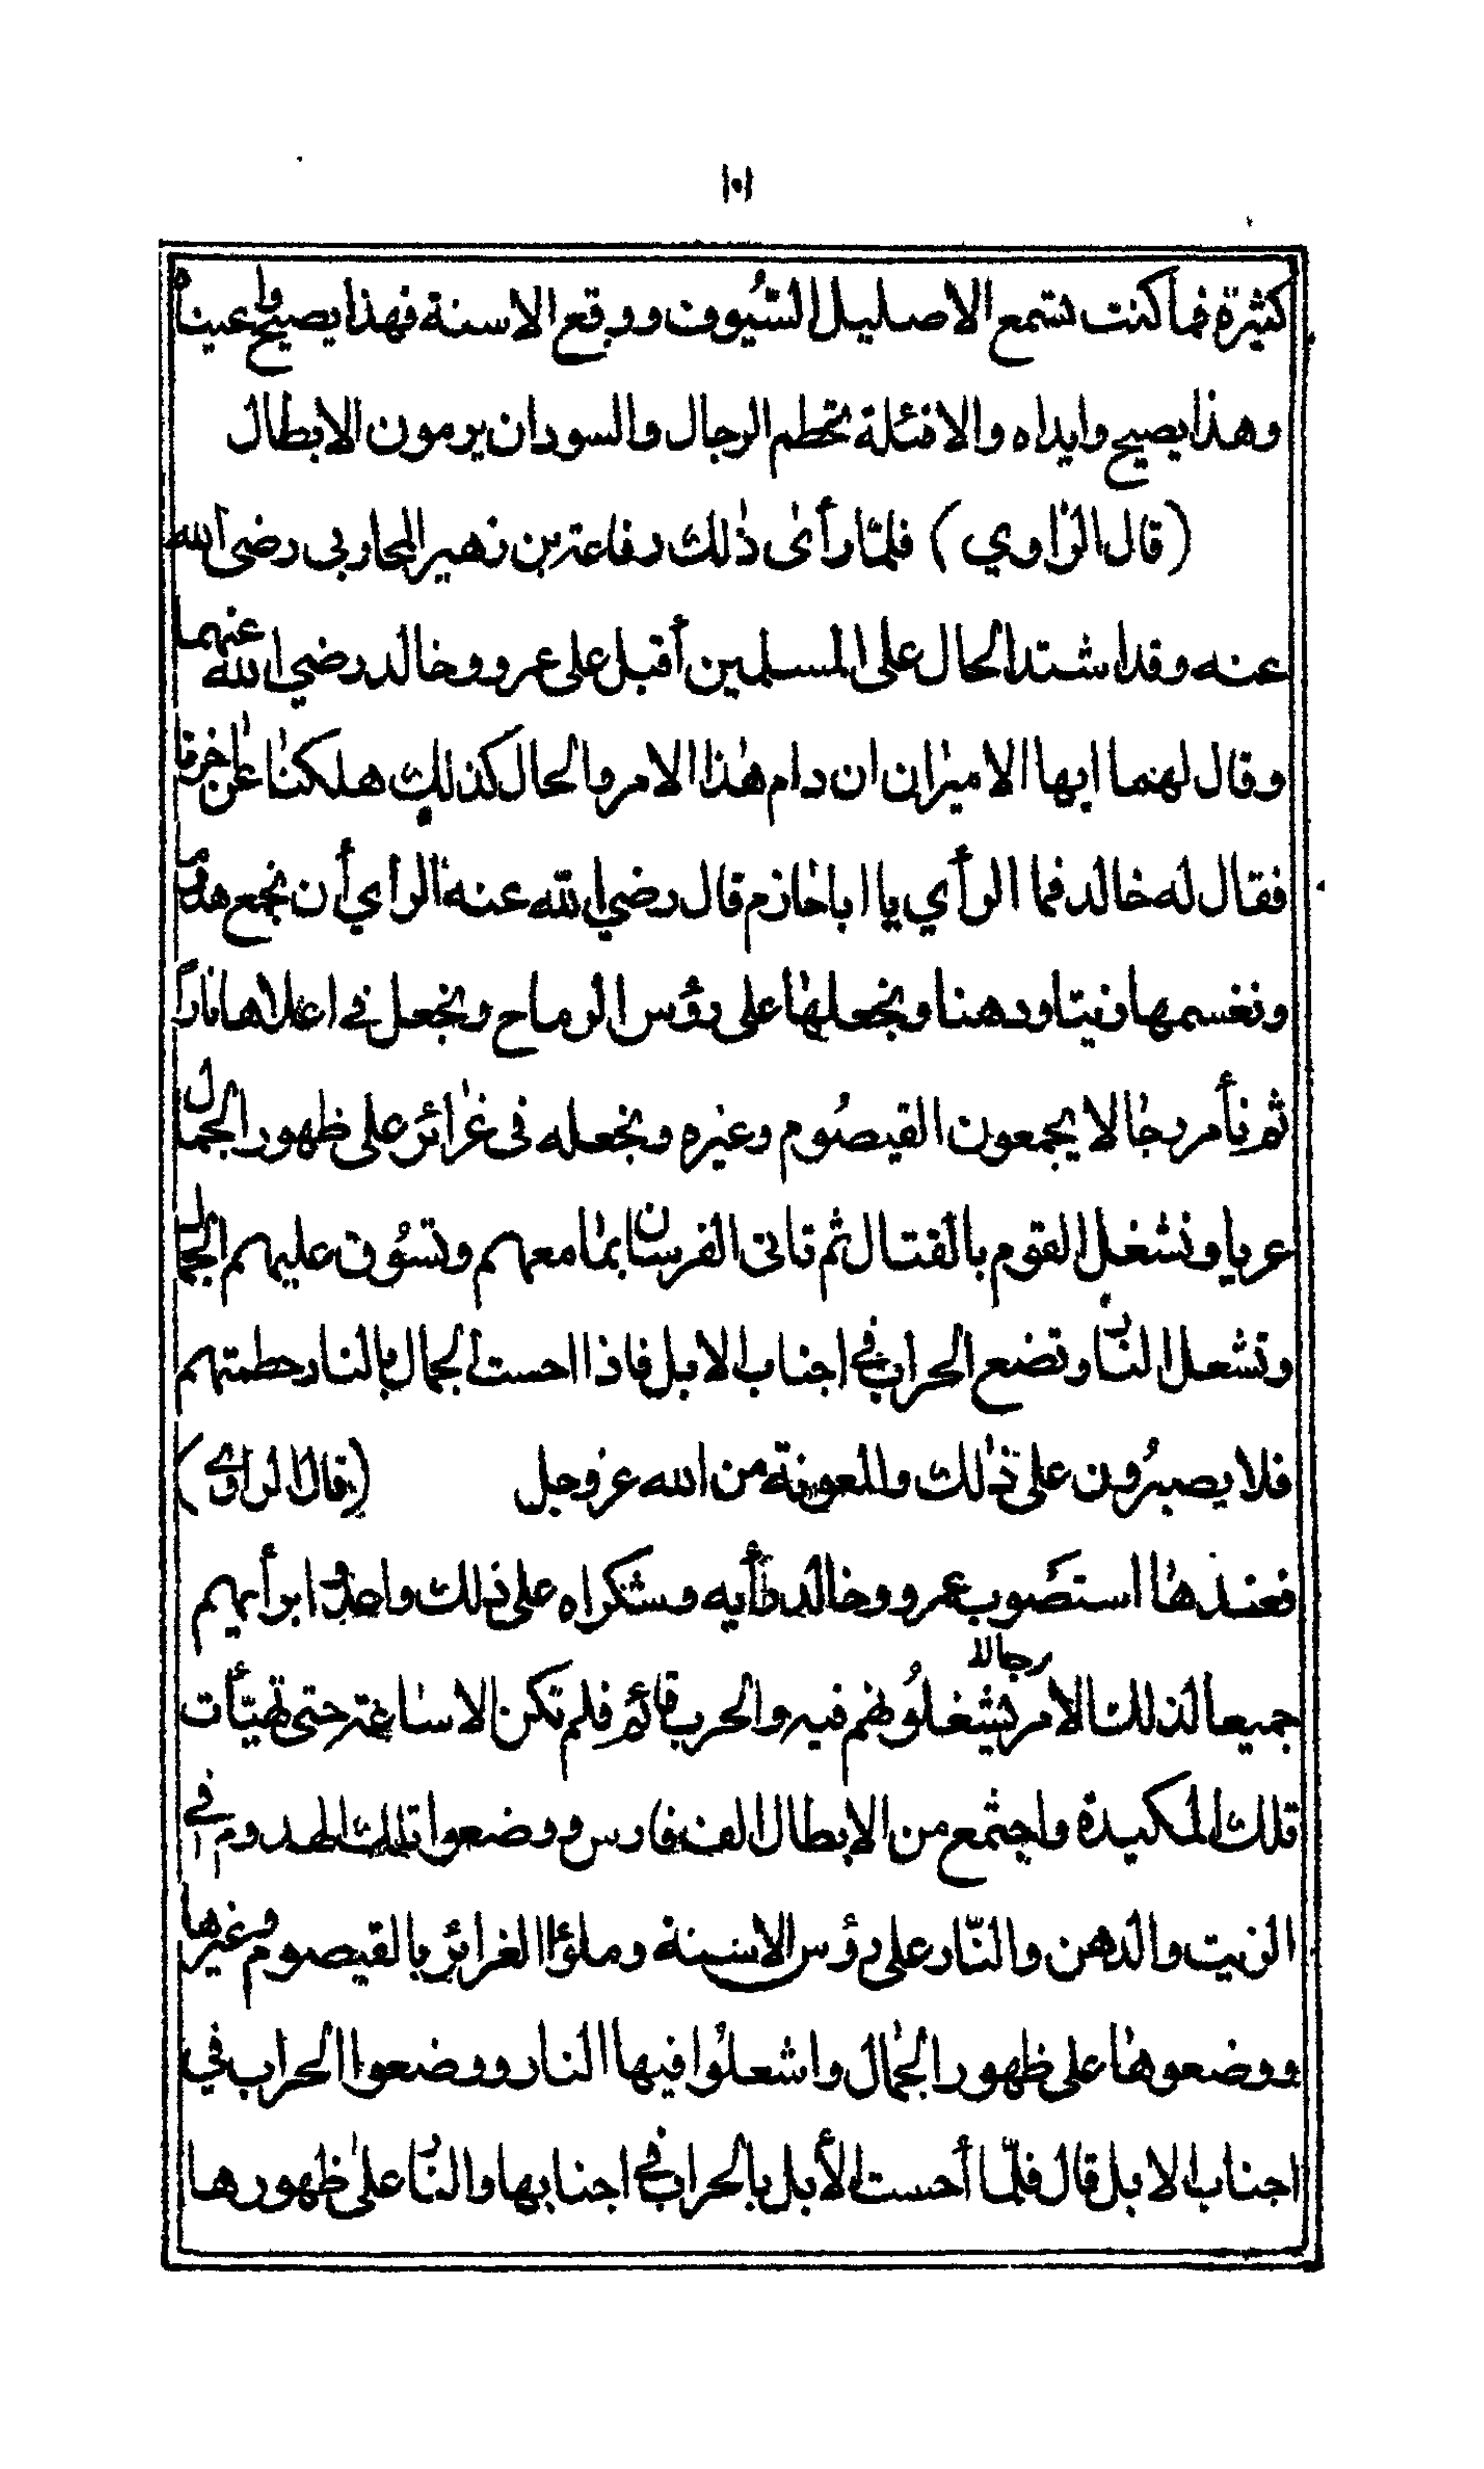 ١٠١
كثيرة فما كنت تستمع الا صليل السُّيوف ووقع الاسنة فهذا يصيح واعيناه
وهذا يصيح وايداه والافئلة تحطم الرجال والسودان يرمون الابطال
(قال الرّاوي) فلمّا رأى ذٰلك رفاعة بن زهير المحاربى رضى الله
عنه وقد اشتد الحال على المسلمين أقبل على عمرو وخالد رضي الله عنهما
وقال لهما ايها الاميران ان دام هذا الامر والحال كذلك هلكنا عن اخرنا
فقال له خالد فما الرأي يا ابا حازم قال رضي الله عنه الراي أن نجمع هدوما
ونغسمها زيتا ودهنا ونجعلها على رؤس الرماح ونجعل في اعلاها ناراً
ثم نأمر رجالا يجمعون القيصُوم وغيره ونجعله فى غرائز على ظهور الجمال
عريا ونشغل القوم بالقتال ثم تاتى الفرسان بما معهم وتسُوق عليهم الجمال
وتشعل النار وتضع الحراب في اجناب الابل فاذا احست الجمال بالنار حطمتهم
فلا يصبرُون على ذٰلك والمعونة من الله عز وجل (قال الراوى)
فعندها استصَوب عمرو وخالد رأيه وشكراه على ذلك واخبرا برأيهم
جميعا لذلك الامر رجالا يشغلُونهم فيه والحرب قائم فلم تكن الا ساعة حتى تهيّأت
تلك المكيدة واجتمع من الابطال الف فارس ووضعوا تلك الهدوم في
الزيت والدهن والنّار على رؤس الاسنة وملؤا الغرائز بالقيصوم وغيرها
ووضعوها على ظهور الجمال واشعلوا فيها النار ووضعوا الحراب في
اجناب الابل قال فلمّا أحست الأبل بالحراب في اجنابها والنار على ظهورها